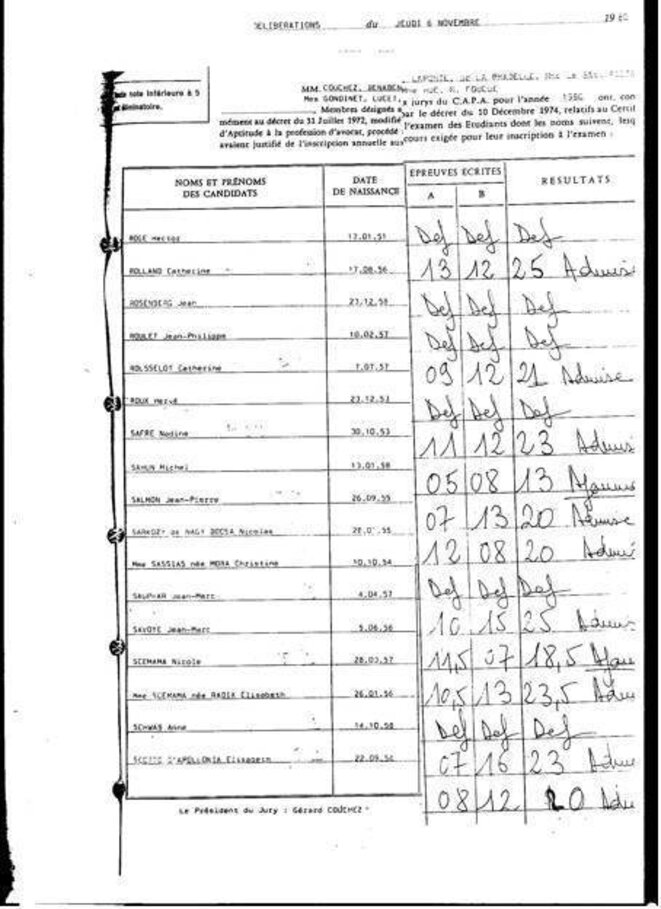 DELIBERATIONS du JEUDI 6 NOVEMBRE 19 80
note inférieure à 5
éliminatoire.
MM. COUCHEZ, BENABEN
Mes GONDINET, LUCET,
, Membres désignés
mément au décret du 31 Juillet 1972, modifié
d'Aptitude à la profession d'avocat, procédé
avaient justifié de l'inscription annuelle aux
LAPORTE, DE LA PRADELLE,
jurys du C.A.P.A. pour l'année 1980 ont, con
par le décret du 10 Décembre 1974, relatifs au Certif
l'examen des Etudiants dont les noms suivent, lesq
cours exigée pour leur inscription à l'examen :
NOMS ET PRÉNOMS DES CANDIDATS DATE DE NAISSANCE EPREUVES ECRITES A B RESULTATS
ROGE Hector 13.01.51 Def Def Def
ROLLAND Catherine 17.08.56 13 12 25 Admise
ROSENBERG Jean 27.12.58 Def Def Def
ROULET Jean-Philippe 10.02.57 Def Def Def
ROUSSELOT Catherine 7.07.57 09 12 21 Admise
ROUX Hervé 23.12.53 Def Def Def
SAFRE Nadine 30.10.53 11 12 23 Admis
SAHUN Michel 13.01.58 05 08 13 Ajourné
SALMON Jean-Pierre 26.09.55 07 13 20 Admise
SARKOZY de NAGY BOCSA Nicolas 12 08 20 Admi
Mme SASSIAS née MORA Christine 10.10.54 Def Def Def
SAUPHAR Jean-Marc 4.04.57 10 15 25 Admis
SAVOYE Jean-Marc 5.06.56 11,5 07 18,5 Ajou
SCEMAMA Nicole 28.03.57 10,5 13 23,5 Adm
Mme SCEMAMA née RADIA Elisabeth 26.01.56 Def Def Def
SCHWAB Anne 14.10.58 07 16 23 Adm
SCOTTO D'APOLLONIA Elisabeth 22.09.56 08 12 20 Adm
Le Président du Jury : Gérard COUCHEZ